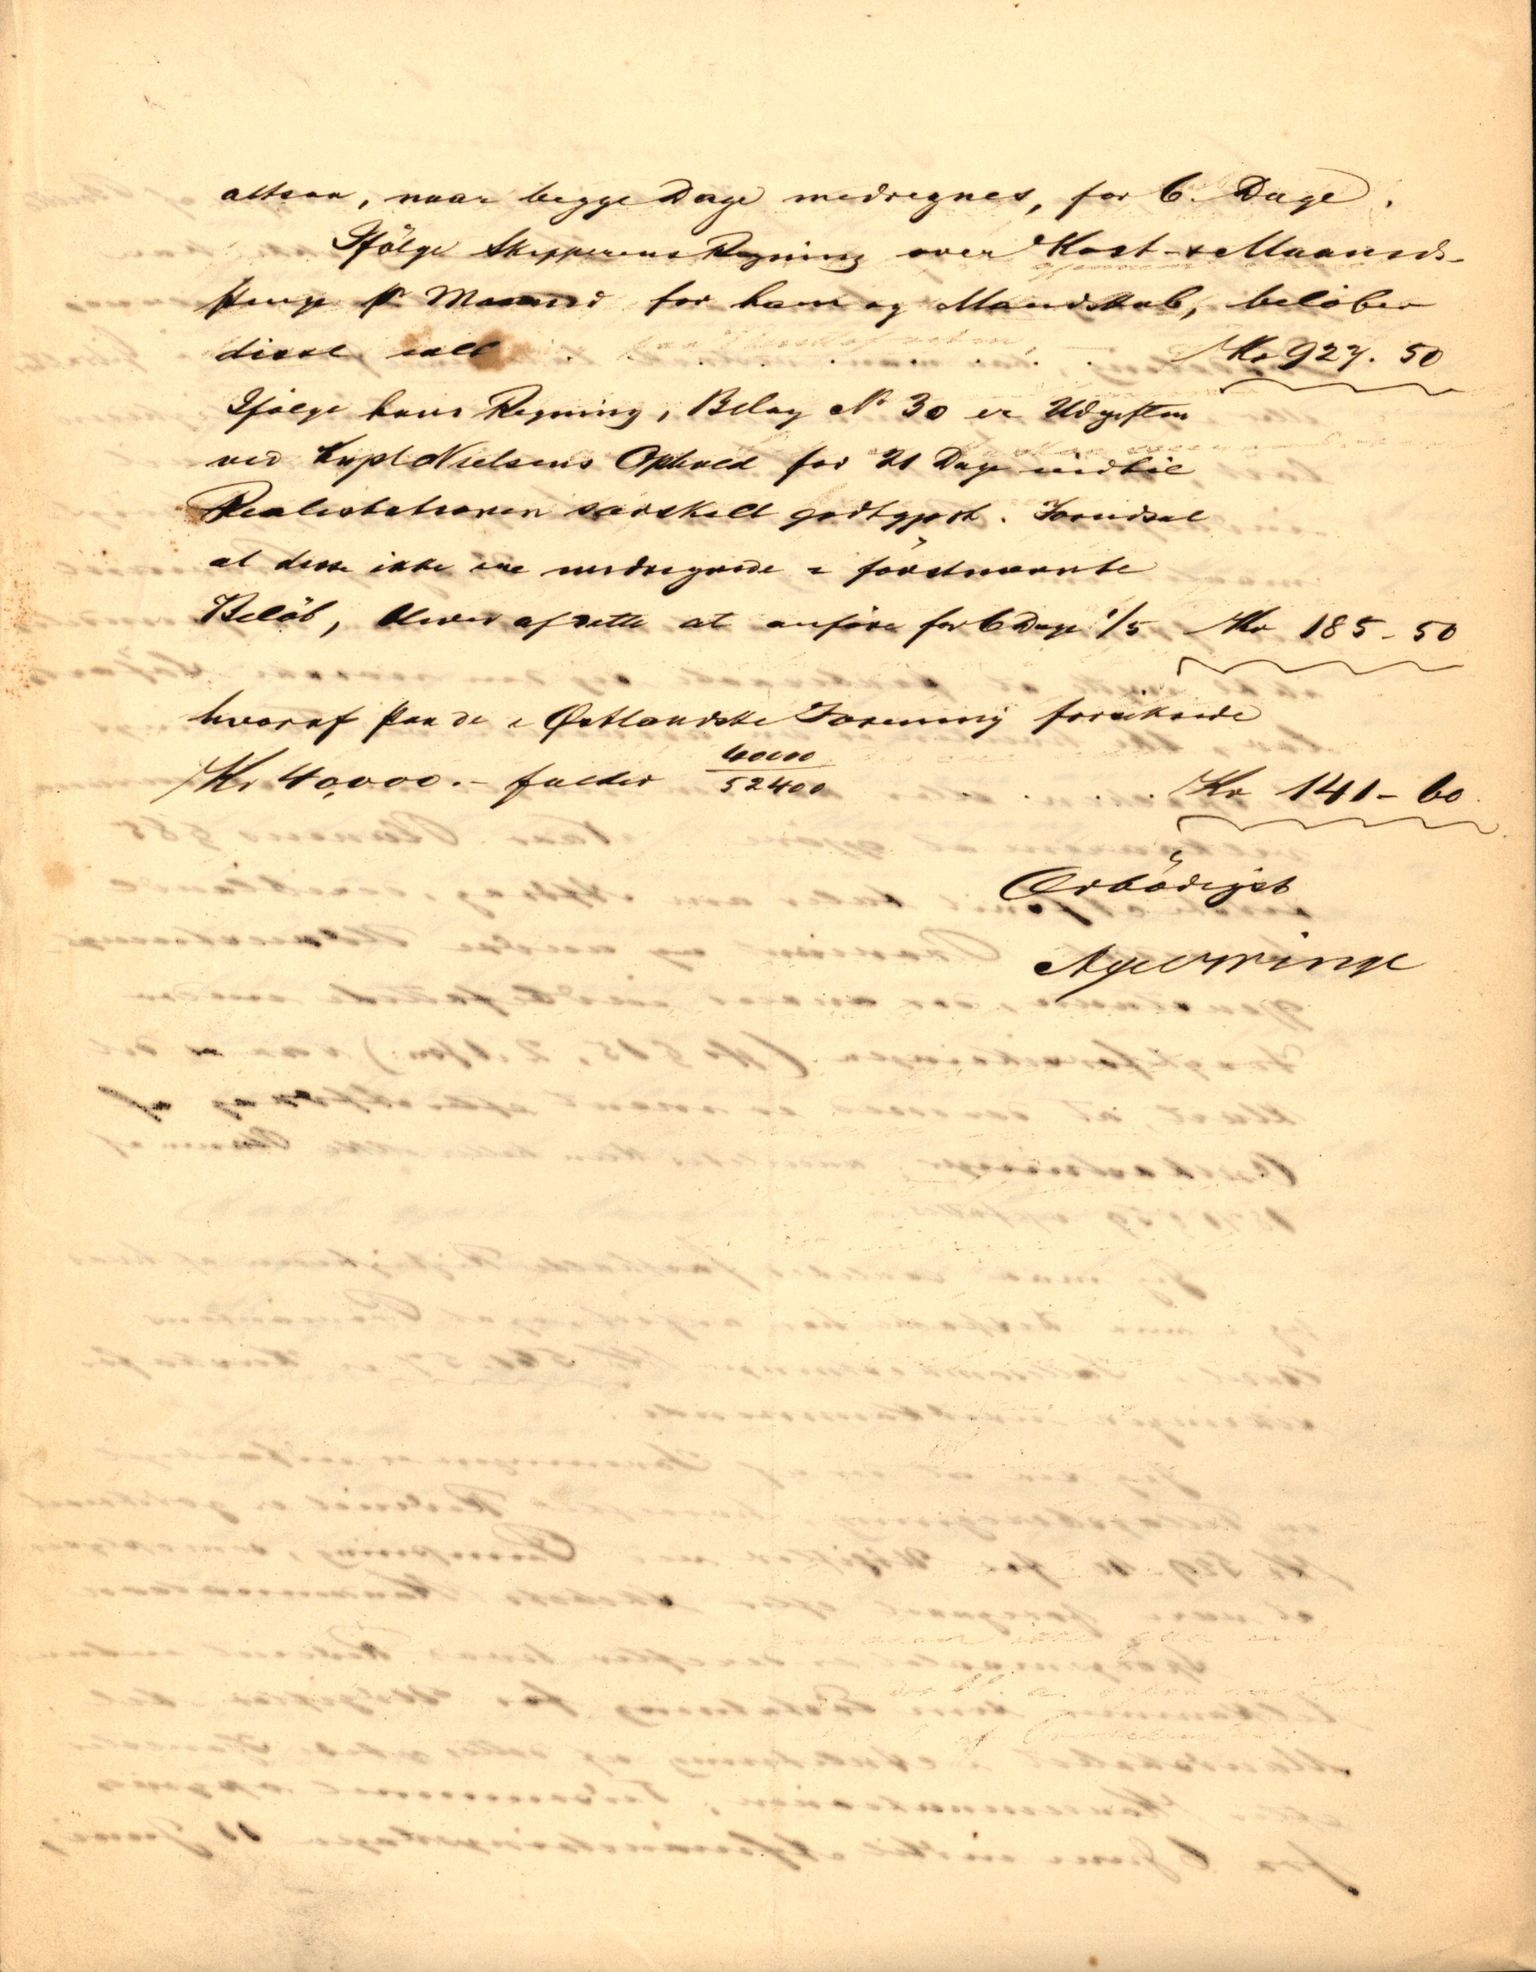 altsaa, naar begge Dage medregnes, for 6. Dage.
Ifölge Skipperens Regning over Kost- & Maaneds-
penge pr Maaned for ham og Mandskab, belöber
disse . . . . . . Kr 927. 50
Ifölge hans Regning, Bilag No 30 er Udgiften
ved Kapt Nielsens Ophold for 21 Dage indtil
Realisationen särskilt godtgjort. Forudsat
at disse ikke ere medregnede i förstnævnte
Belöb, bliver af dette at anföre for 6 Dage 1/5 Kr 185-50
hvoraf paa de i Østlandske Forening forsikrede
Kr 40,000.- falder 40000/52400 . . . . Kr 141-60.
Ærbödigst